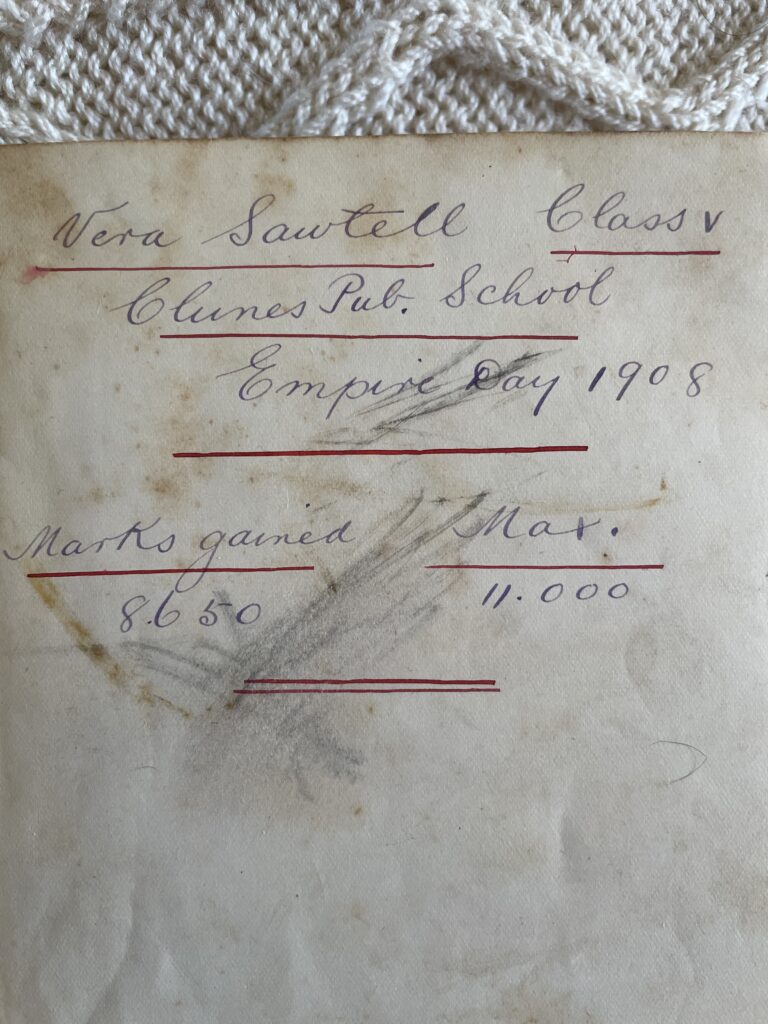 Vera Sawtell Class V
Clunes Pub. School
Empire Day 1908
Marks gained Max.
8.650 11.000